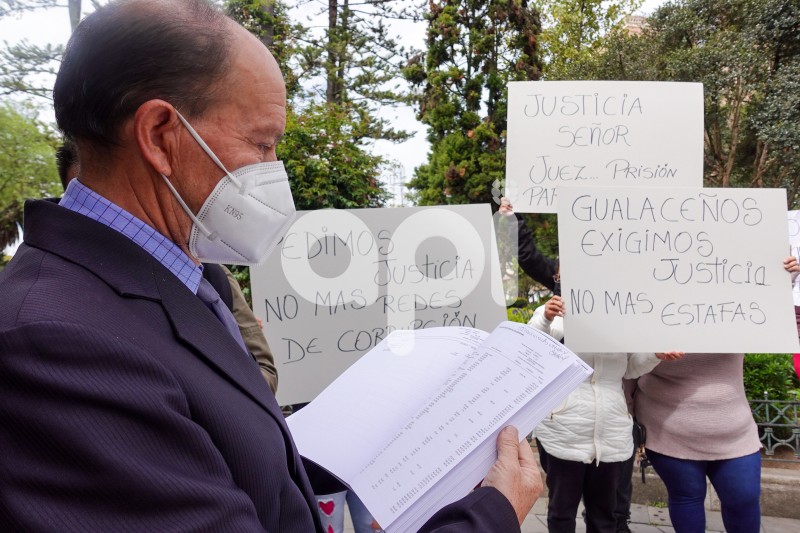 JUSTICIA
SEÑOR
JUEZ... PRISIÓN
GUALACEÑOS
EXIGIMOS
JUSTICIA
NO MAS ESTAFAS
EDIMOS
JUSTICIA
NO MAS REDES
DE CORRUPCIÓN
KN95
api